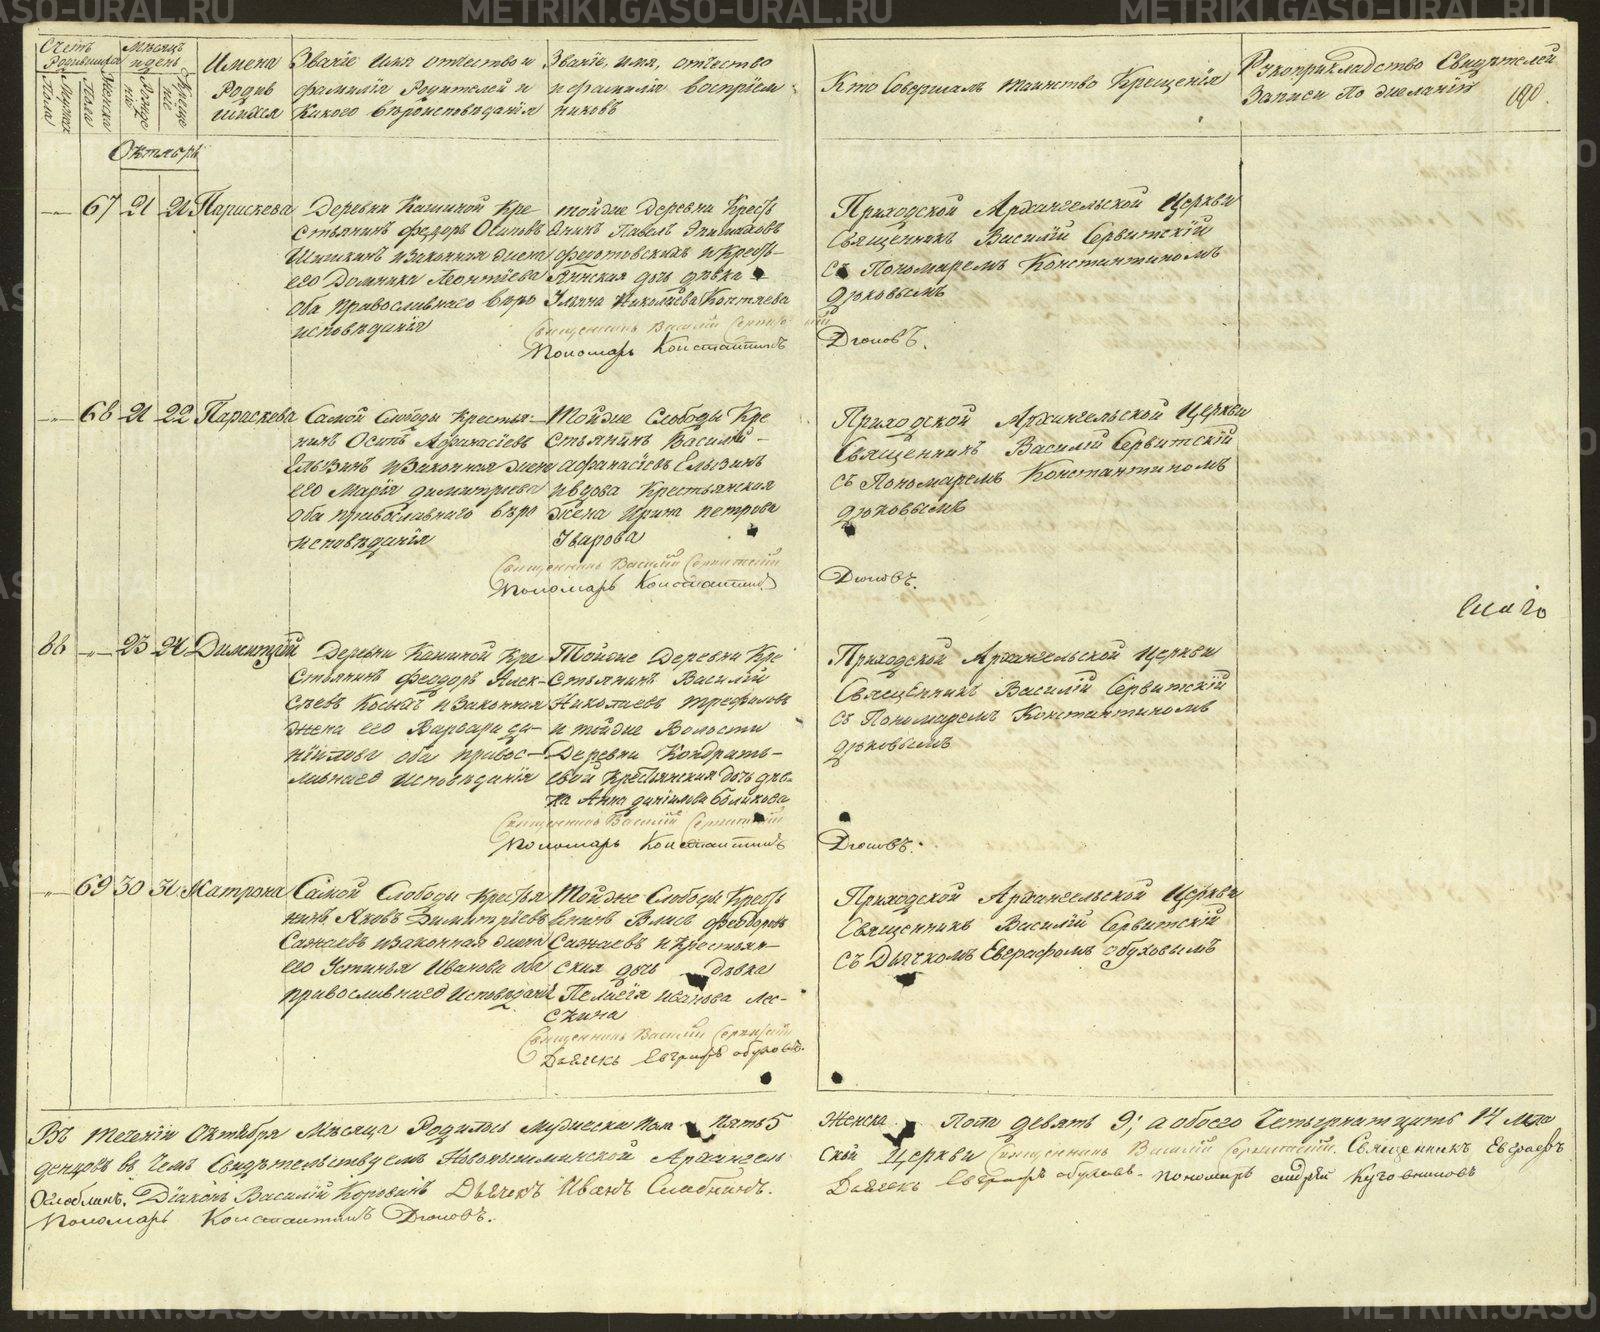 Счетъ Родившихся
Мѣсяцъ и день
Мужска Пола
Женска Пола
Рожденія
Крещенія
Имена Родившихся
Званіе Имя отчество и фамилія Родителей и Какого вѣроисповѣданія
Званіе, имя, отчество и фамилія воспріемниковъ
Кто Совершалъ таинство Крещенія
Рукоприкладство Свидѣтелей Записи По желанію
Октябрь
67 21 21 Параскева
Деревни Кашиной Кре
стьянинъ Федоръ Осиповъ
Шишкинъ изаконная жена
его Домника Леонтіева
Оба православнаго вѣро
исповѣданія
тойже Деревни Кресть
янинъ Павелъ
и Кресть
янская дочь дѣвка
Ульяна Николаева Коптяева
Священникъ Василій Сервитскій
Пономарь Константинъ Дюковъ.
Приходской Архангельской Церкви
Священникъ Василій Сервитскій
съ Пономаремъ Константиномъ
Дюковымъ
68 21 22 Параскева
Самой Слободы Крестья-
нинъ Осипъ Афанасіевъ
Елызинъ изаконная жена
его Марія Димитріева
оба православнаго вѣро
исповѣданія
Тойже Слободы Кре
стьянинъ Василій
Афанасіевъ Елызинъ
и вдова Крестьянская
жена Ирина Петрова
Уварова
Священникъ Василій Сервитскій
Пономарь Константинъ Дюковъ.
Приходской Архангельской Церкви
Священникъ Василій Сервитскій
съ Пономаремъ Константиномъ
Дюковымъ
23 24 Димитрій
Деревни Кашиной Кре
стьянинъ Феодоръ Алек-
сѣевъ изаконная
жена его Варвара Да-
ніилова оба правос-
лавнаго исповѣданія
Тойже Деревни Кре
стьянинъ Василій
Николаевъ Трефиловъ
и тойже Волости
Деревни Кондрать-
евой Крестьянская дочь дѣв-
ка Анна Даніилова
Священникъ Василій Сервитскій
Пономарь Константинъ Дюковъ.
Приходской Архангельской Церкви
Священникъ Василій Сервитскій
съ Пономаремъ Константиномъ
Дюковымъ
69 30 31 Матрона
Самой Слободы Крестья
нинъ Яковъ Димитріевъ
Сажаевъ изаконная жена
его Устинья Иванова оба
православнаго исповѣданія
Тойже Слободы Кресть
янинъ Власъ Феодоровъ
Сажаевъ и Крестьян-
ская дочь дѣвка
Пелагея Иванова Лес-
кина
Священникъ Василій Сервитскій
Дьячекъ Евграфъ Обуховъ.
Приходской Архангельской Церкви
Священникъ Василій Сервитскій
съ Дьячкомъ Евграфомъ Обуховымъ
Въ теченіи Октября Мѣсяца Родилось Мужеска Пола Пять 5 Женска Пола девять 9; а обоего Четырнатцать 14 Мла
денцовъ въ Чемъ Свидѣтельствуемъ Новопышминской Архангель
ской Церкви Священникъ Василій Сервитскій. Священникъ Евграфъ
Оглоблинъ. Діаконъ Василій Коровинъ Дьячекъ Иванъ Слабнинъ.
Дьячекъ Евграфъ Обуховъ. Пономарь Андрей
Пономарь Константинъ Дюковъ.
METRIKI.GASO-URAL.RU